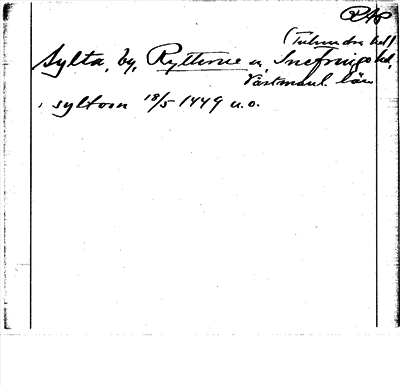 RAP
(Tuhundra hd)
Sylta, by, Rytterne sn, Snefringe hd,
Västmanl. län
i syltom 18/5 1449 u.o.